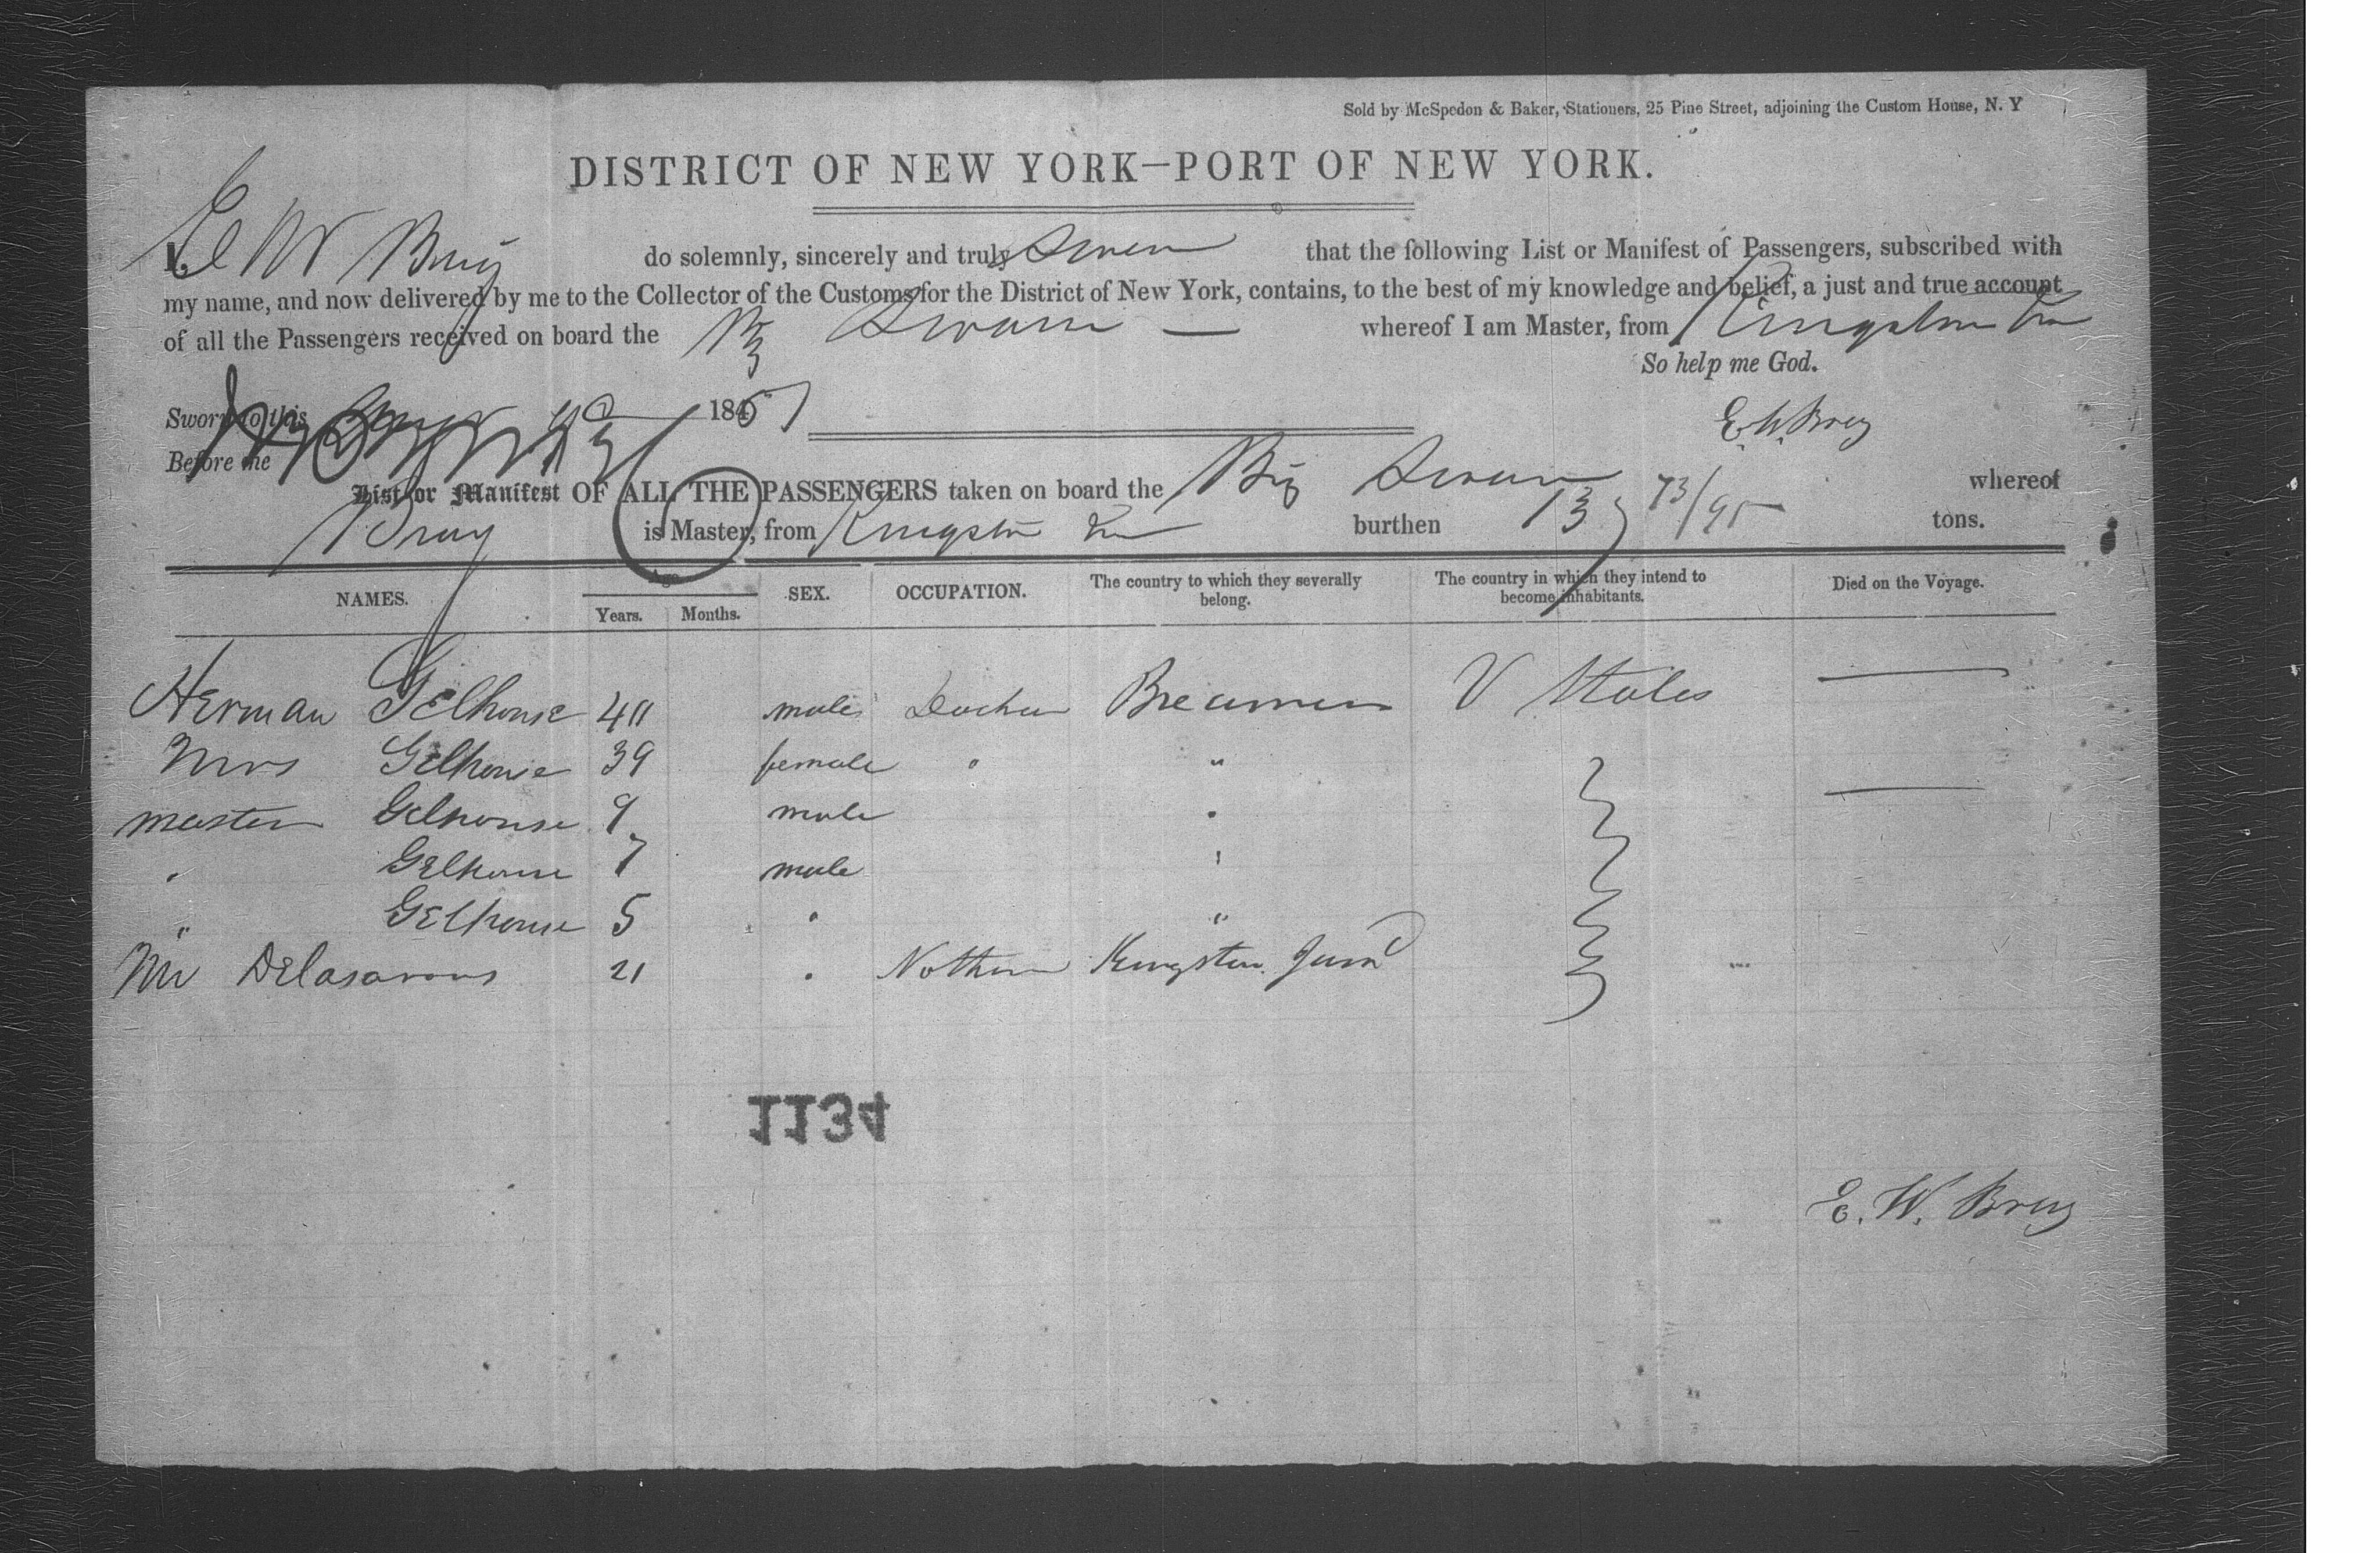 Sold by McSpedon & Baker, Stationers, 25 Pine Street, adjoining the Custom House, N. Y
DISTRICT OF NEW YORK—PORT OF NEW YORK.
I, E W Bray do solemnly, sincerely and truly Swear that the following List or Manifest of Passengers, subscribed with
my name, and now delivered by me to the Collector of the Customs for the District of New York, contains, to the best of my knowledge and belief, a just and true account
of all the Passengers received on board the Brig Swan — whereof I am Master, from Kingston Jm
So help me God.
Sworn to this 1851
E. W. Bray
Before me
List or Manifest OF ALL THE PASSENGERS taken on board the Brig Swan whereof
Bray is Master, from Kingston Jm burthen 133 73/95 tons.
NAMES. Age SEX. OCCUPATION. The country to which they severally belong. The country in which they intend to become inhabitants. Died on the Voyage.
Years. Months.
Herman Gelhouse 40 male Breamen U States
Mrs Gelhouse 39 female " "
master Gelhouse 9 male "
" Gelhouse 7 male "
" Gelhouse 5 " "
Mr Delasarous 21 " Kingston Jam
1134
E. W. Bray